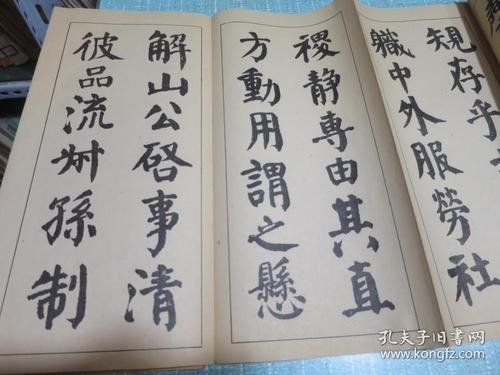 規存乎
職中外服勞社
稷静專由其直
方動用謂之懸
解山公啓事清
彼品流叔孫制
孔夫子旧书网
www.kongfz.com